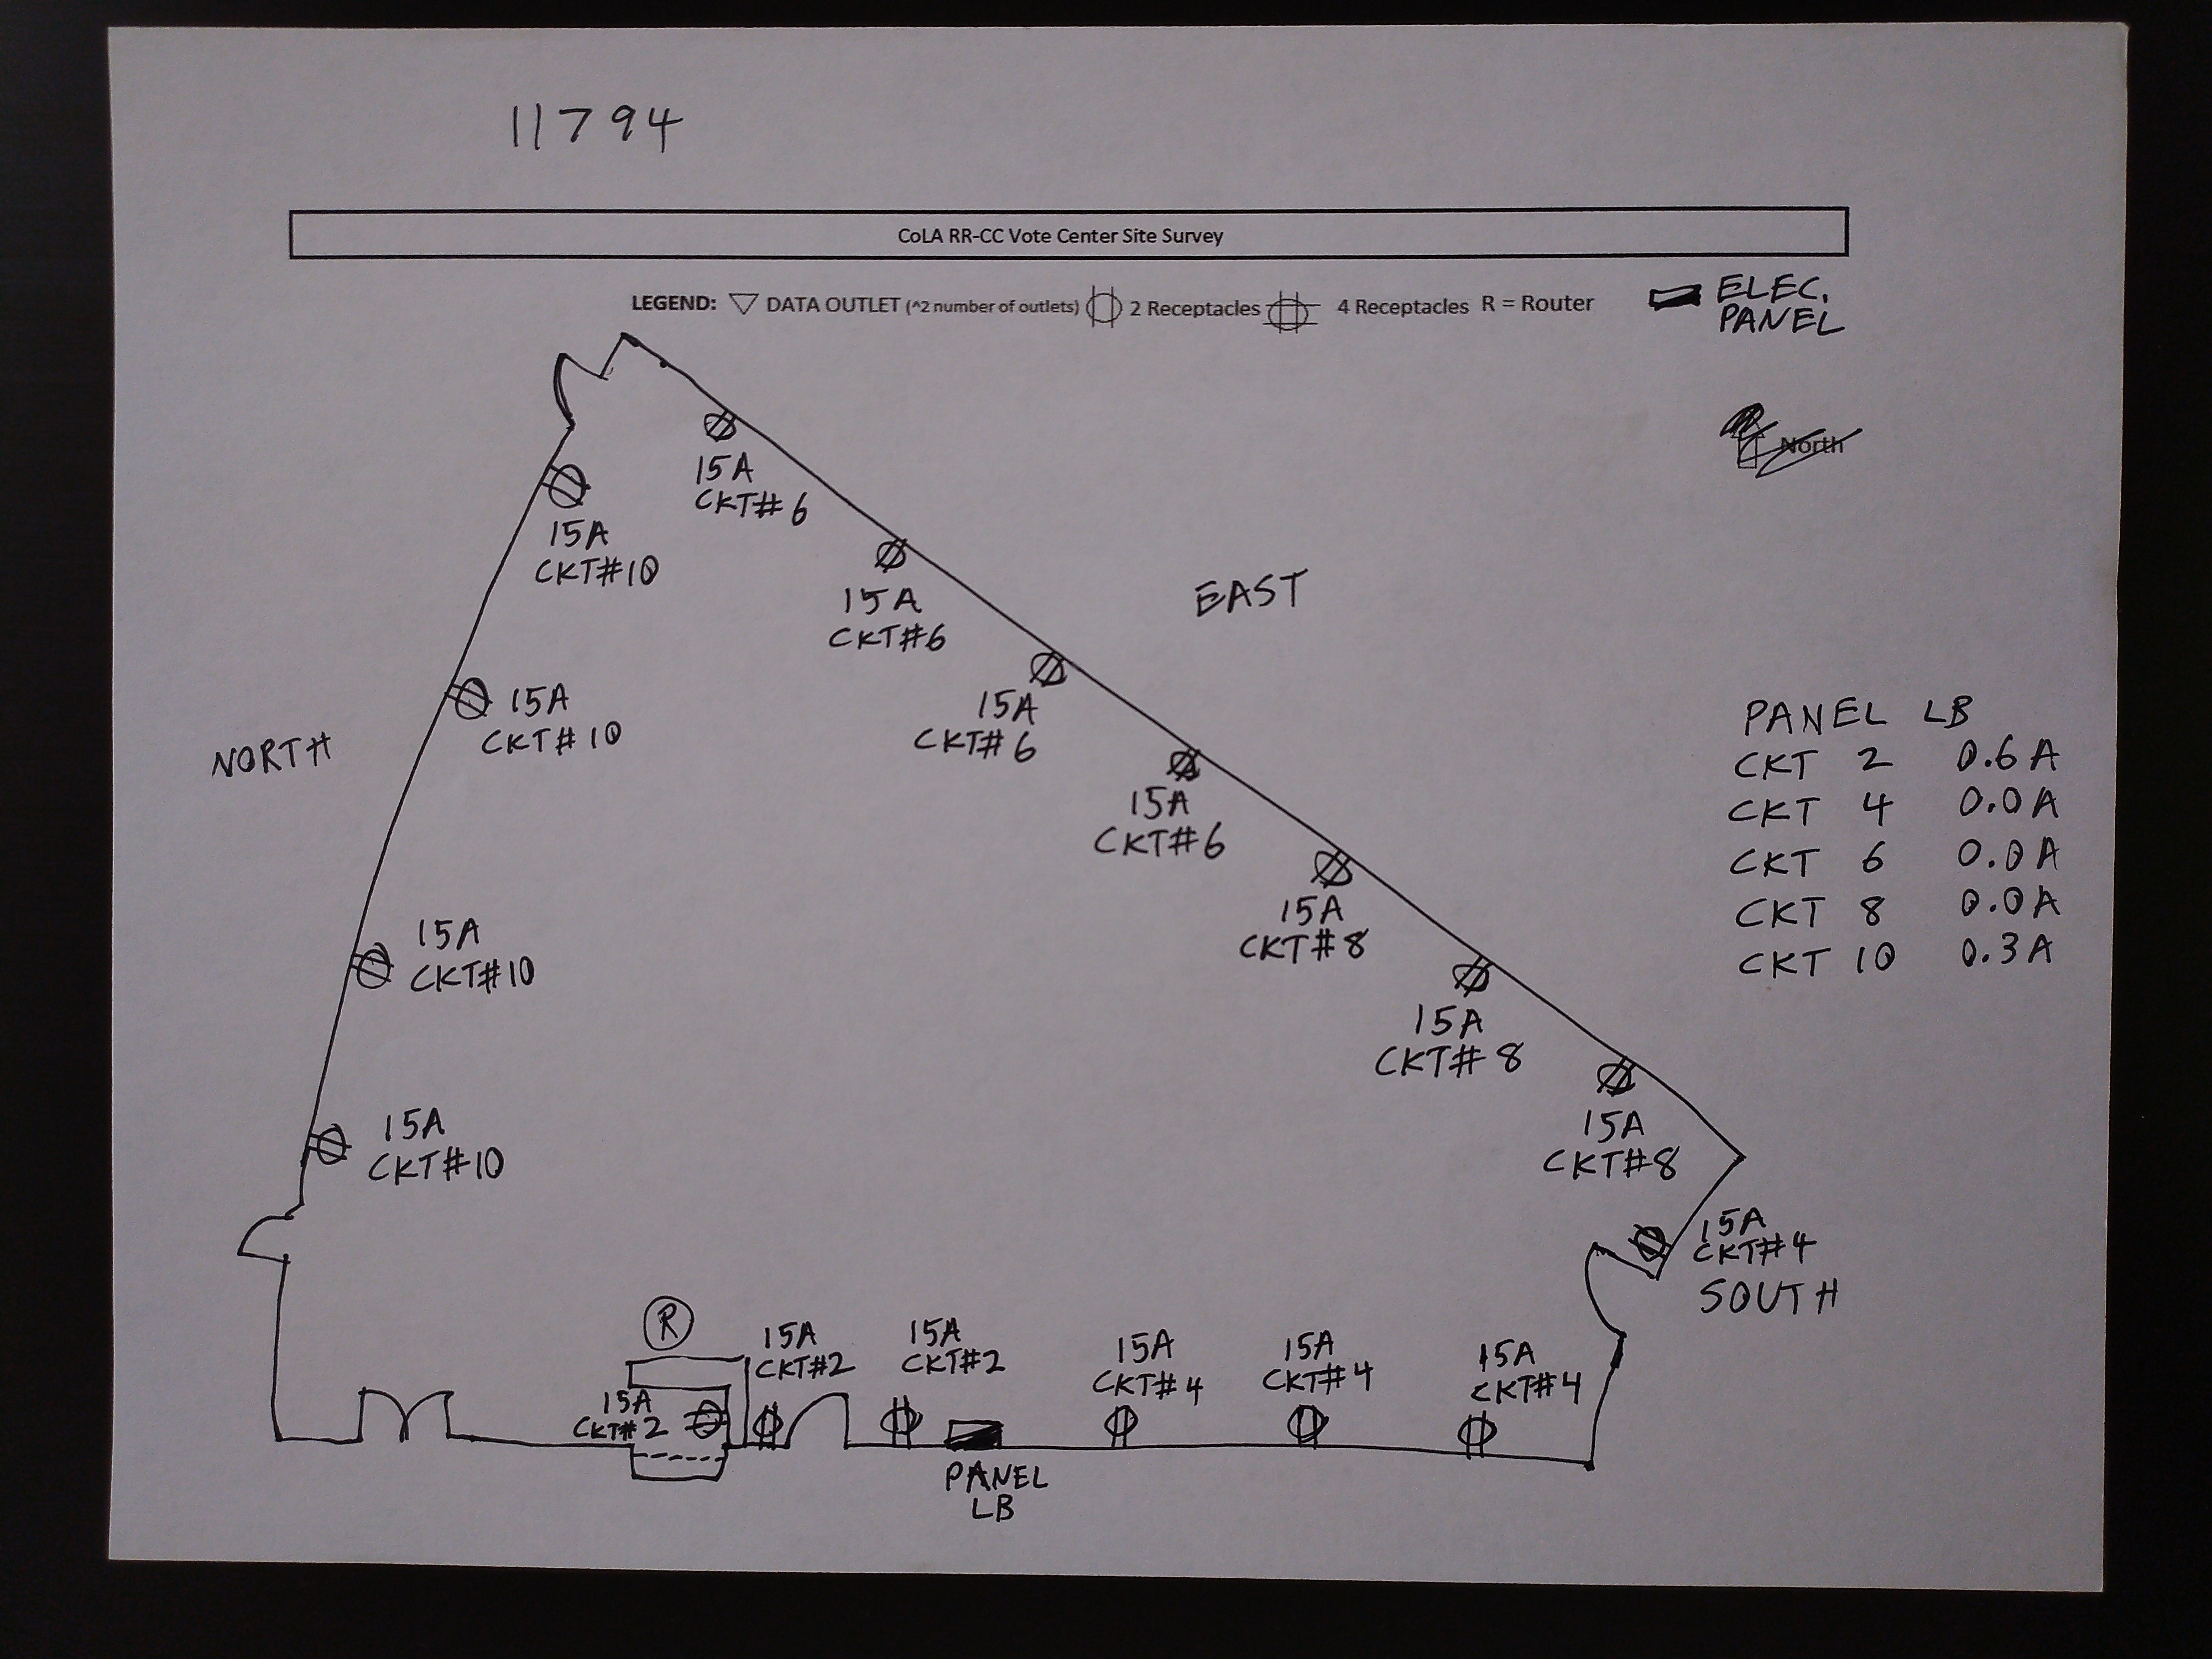 11794
CoLA RR-CC Vote Center Site Survey
LEGEND: DATA OUTLET (^2 number of outlets) 2 Receptacles 4 Receptacles R = Router
ELEC.
PANEL
North
15A
CKT# 6
15A
CKT#10
15A
CKT#6
EAST
15A
CKT# 6
15A
CKT#10
NORTH
15A
CKT#6
15A
CKT#8
15A
CKT#10
15A
CKT#8
15A
CKT#10
15A
CKT#8
PANEL LB
CKT 2 0.6 A
CKT 4 0.0 A
CKT 6 0.0 A
CKT 8 0.0 A
CKT 10 0.3 A
15A
CKT#4
SOUTH
R
15A
CKT#2
15A
CKT#2
15A
CKT#2
15A
CKT#4
15A
CKT#4
15A
CKT#4
PANEL
LB